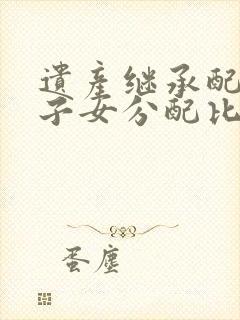 遺產继承配
子女分配比
蛋塵